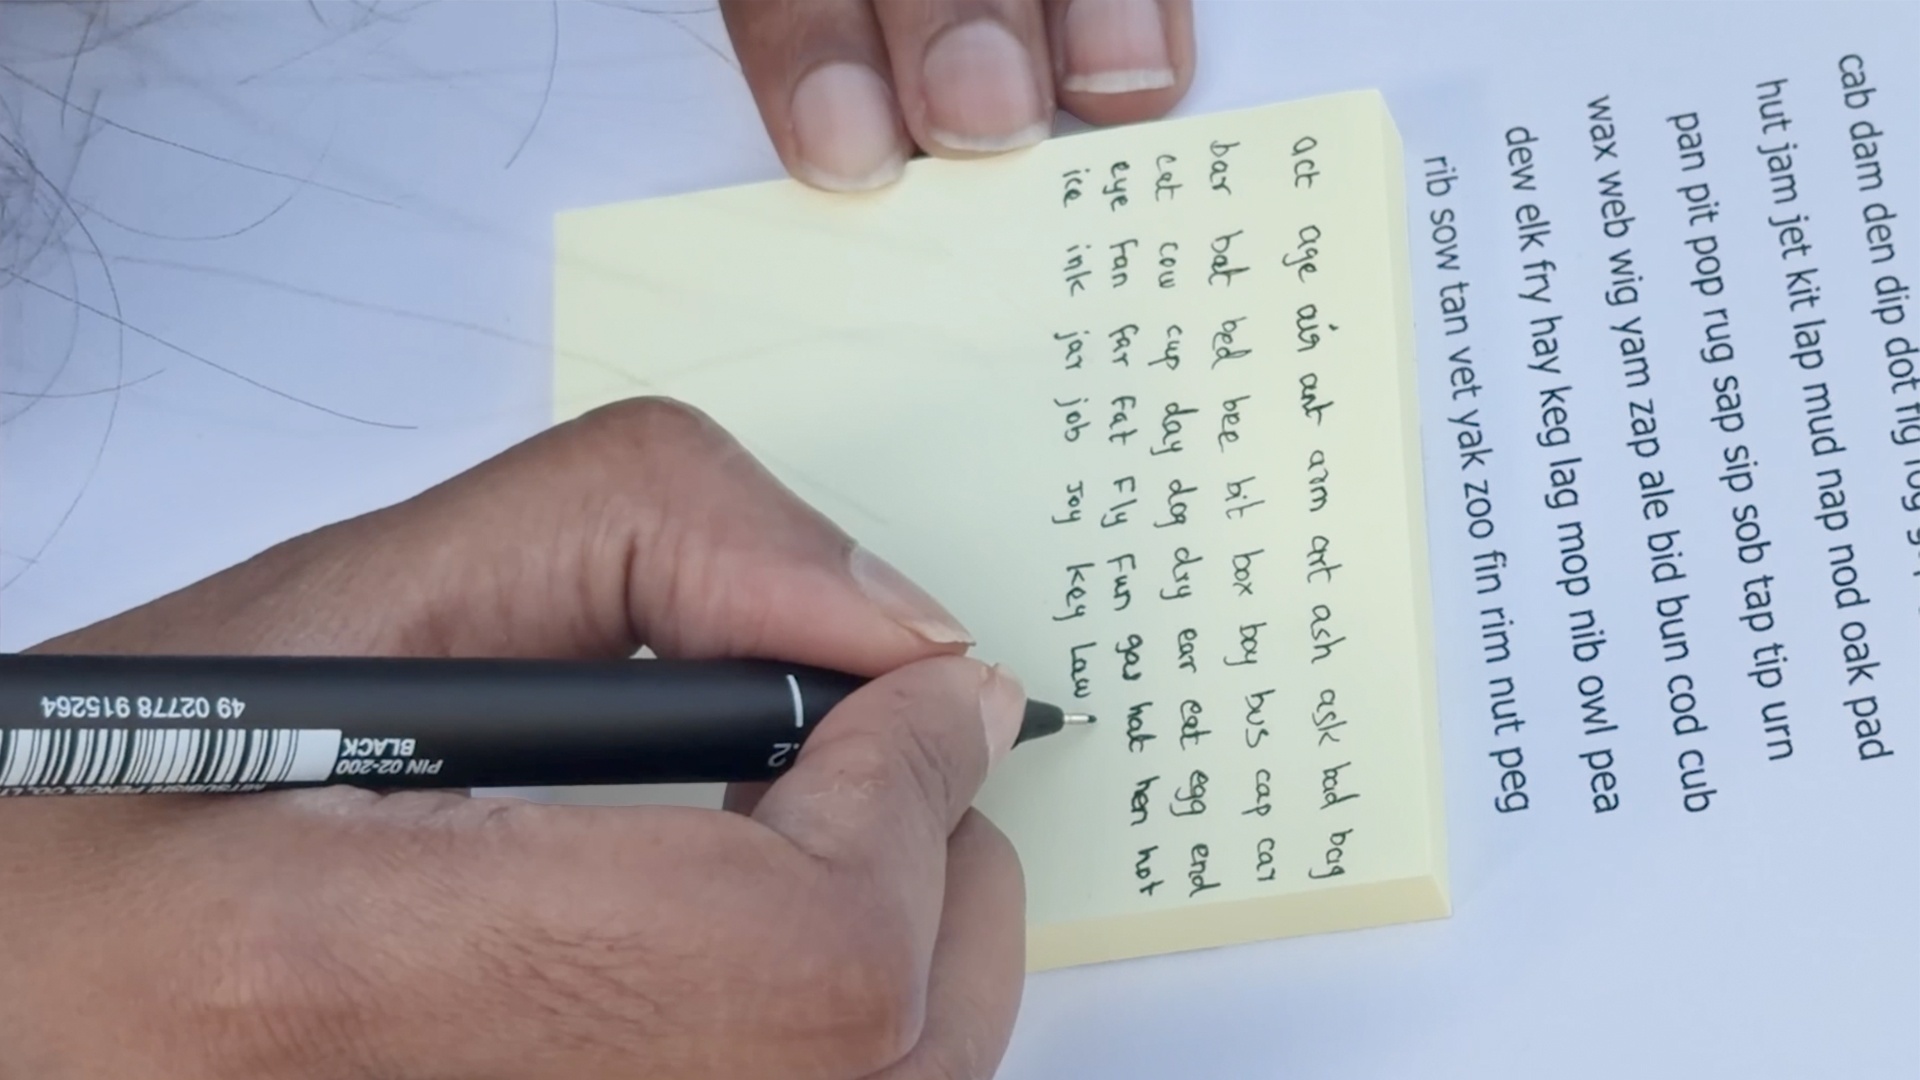 cab dam den dip dot fig fog
hut jam jet kit lap mud nap nod oak pad
pan pit pop rug sap sip sob tap tip urn
wax web wig yam zap ale bid bun cod cub
dew elk fry hay keg lag mop nib owl pea
rib sow tan vet yak zoo fin rim nut peg
act age air ant arm art ash ask bad bag
bar bat bed bee bit box boy bus cap car
cat cow cup day dog dry ear eat egg end
eye Fan Far Fat Fly Fun gas hat hen hot
ice ink jar job Joy key Law
MITSUBISHI PENCIL CO.,
PIN 02-200
BLACK
49 02778 915264